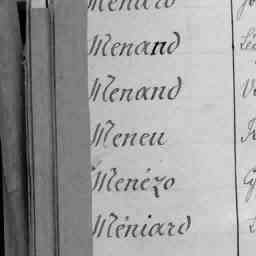 Menand
Menand
Meneu
Menézo
Méniard